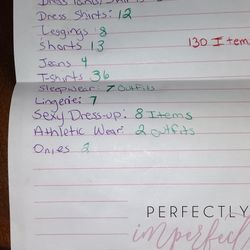 Dress Shirts: 12
Leggings 8
Shorts 13
130 Item
Jeans 4
T-Shirts 36
Sleepwear: 7 Outfits
Lingerie: 7
Sexy Dress-up: 8 Items
Athletic Wear: 2 outfits
Onies 2
PERFECTLY
imperfect